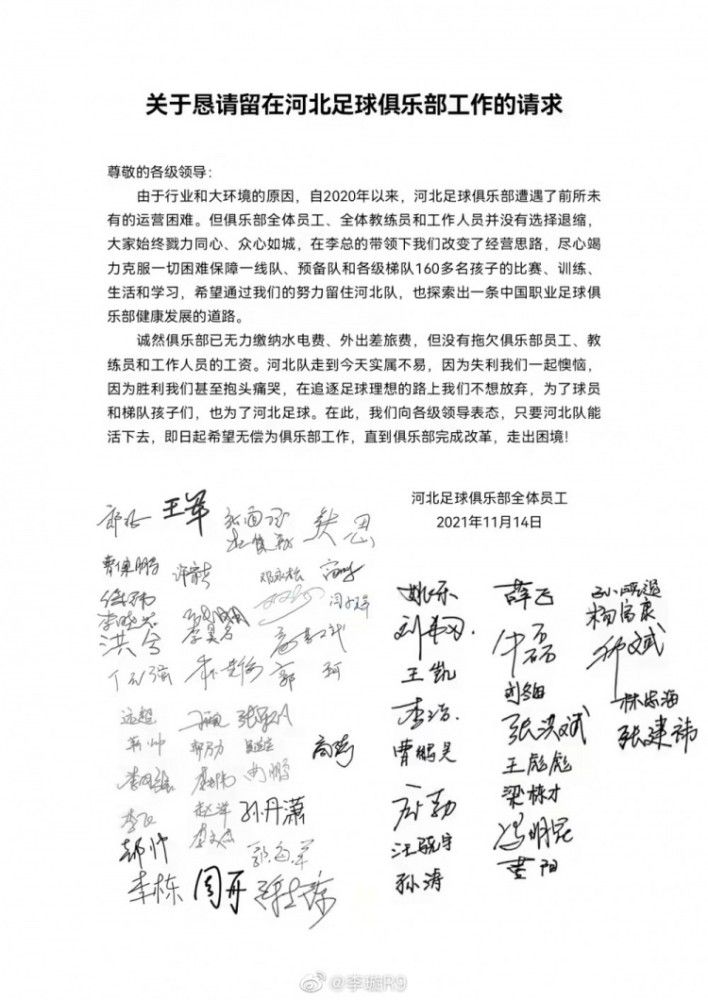 关于恳请留在河北足球俱乐部工作的请求
尊敬的各级领导：
由于行业和大环境的原因，自2020年以来，河北足球俱乐部遭遇了前所未
有的运营困难。但俱乐部全体员工、全体教练员和工作人员并没有选择退缩，
大家始终戮力同心、众心如城，在李总的带领下我们改变了经营思路，尽心竭
力克服一切困难保障一线队、预备队和各级梯队160多名孩子的比赛、训练、
生活和学习，希望通过我们的努力留住河北队，也探索出一条中国职业足球俱
乐部健康发展的道路。
诚然俱乐部已无力缴纳水电费、外出差旅费，但没有拖欠俱乐部员工、教
练员和工作人员的工资。河北队走到今天实属不易，因为失利我们一起懊恼，
因为胜利我们甚至抱头痛哭，在追逐足球理想的路上我们不想放弃，为了球员
和梯队孩子们，也为了河北足球。在此，我们向各级领导表态，只要河北队能
活下去，即日起希望无偿为俱乐部工作，直到俱乐部完成改革，走出困境！
河北足球俱乐部全体员工
2021年11月14日
王军
洪兮
郭珂
远超
孙丹潇
李栋 周丹
姚乐
王凯
李浩
曹鹏昊
汪晓宇
孙涛
薛飞
牛磊
张洪斌
王彪彪
梁栋才
冯明昆
黄阳
杨富康
林忠海
张建祎
@李璇R9